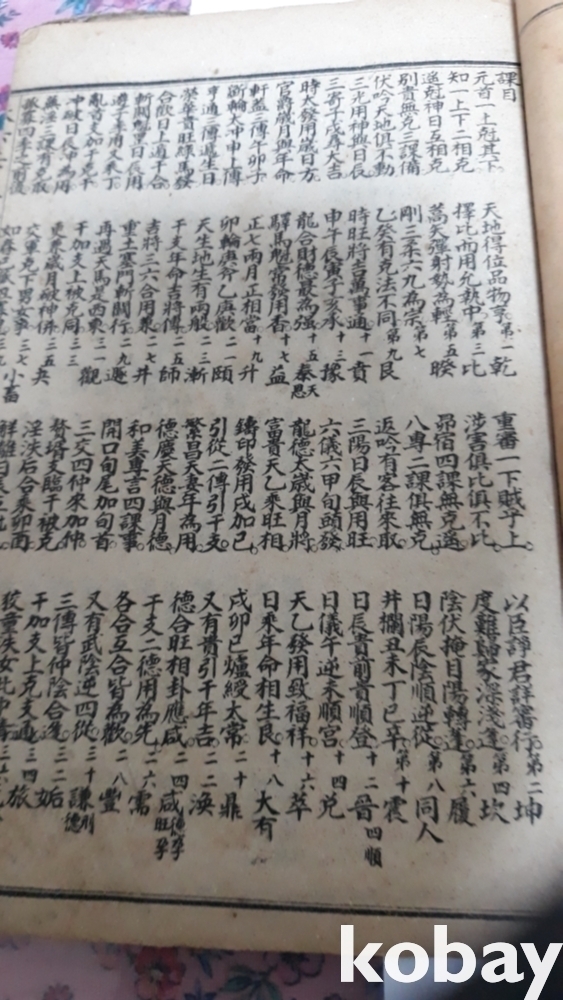 課目
元首一上尅其下 天地得位品物亨 第一 乾 重審一下賊于上 以臣諍君詳審行 第二 坤
知一上下二相克 擇比而用允執中 第三 比 涉害俱比俱不比 度難歸家深淺逢 第四 坎
遙尅神日互相克 蒿矢彈射勢為輕 第五 睽 昴宿四課無克遙 陰伏掩目陽轉逢 第六 履
別責無克三課備 剛三柔六九為宗 第七 八專二課俱無克 日陽辰陰順逆從 第八 同人
伏吟天地俱不動 乙癸有克法不同 第九 艮 返吟有客往來取 井攔丑未丁巳辛 第十 震
三光用神與日辰 時旺將吉萬事通 十一 賁 三陽日辰與用旺 日辰貴前貴順登 十二 晉 四順
三奇子戌辱大吉 申午辰寅子亥承 十三 豫 六儀六甲旬頭發 日儀午逆未順宮 十四 兌
時太發用歲日方 龍合財德最為強 十五 泰 天恩 龍德太歲與月將 天乙發用致福祥 十六 萃
官爵歲月與年命 驛馬魁常發用香 十七 益 富貴天乙乘旺相 日乘年命相生良 十八 大有
軒蓋三傳午卯子 正七兩月正相當 十九 升 鑄印發用戌加巳 戌卯巳爐綬太常 二十 鼎
斵輪太冲申上傳 卯輪庚斧乙庚歡 二一 頤 引從二傳引干支 又有貴引干年吉 二二 渙
亨通三傳遞生日 天生地生有兩般 二三 漸 繁昌天妻年為用 德合旺相卦應咸 二四 咸 德孕 旺孕
榮華貴旺祿馬發 干支年命吉將傳 二五 師 德慶天德與月德 干支二德用為先 二六 需
合歡日上遁干合 吉將三六合用泉 二七 井 和美專言四課事 各合互合皆為歡 二八 豐
斬關魁罡日辰用 重土塞門斬關行 二九 遯 開口旬尾加旬首 又有武陰逆四從 三十 謙 刑德
遊子季用又來丁 再遇天馬走西東 三一 觀 三交四仲來加仲 三傳皆仲陰合逢 三二 姤
亂首支加干克干 干加支上被克同 三三 贅壻支臨干被克 干加支上克支通 三四 旅
冲破日辰冲為用 更乘歲月破神併 三五 夬 淫泆后合乘卯酉
蕪淫三課有克取 交車克下男女爭 三七 小畜